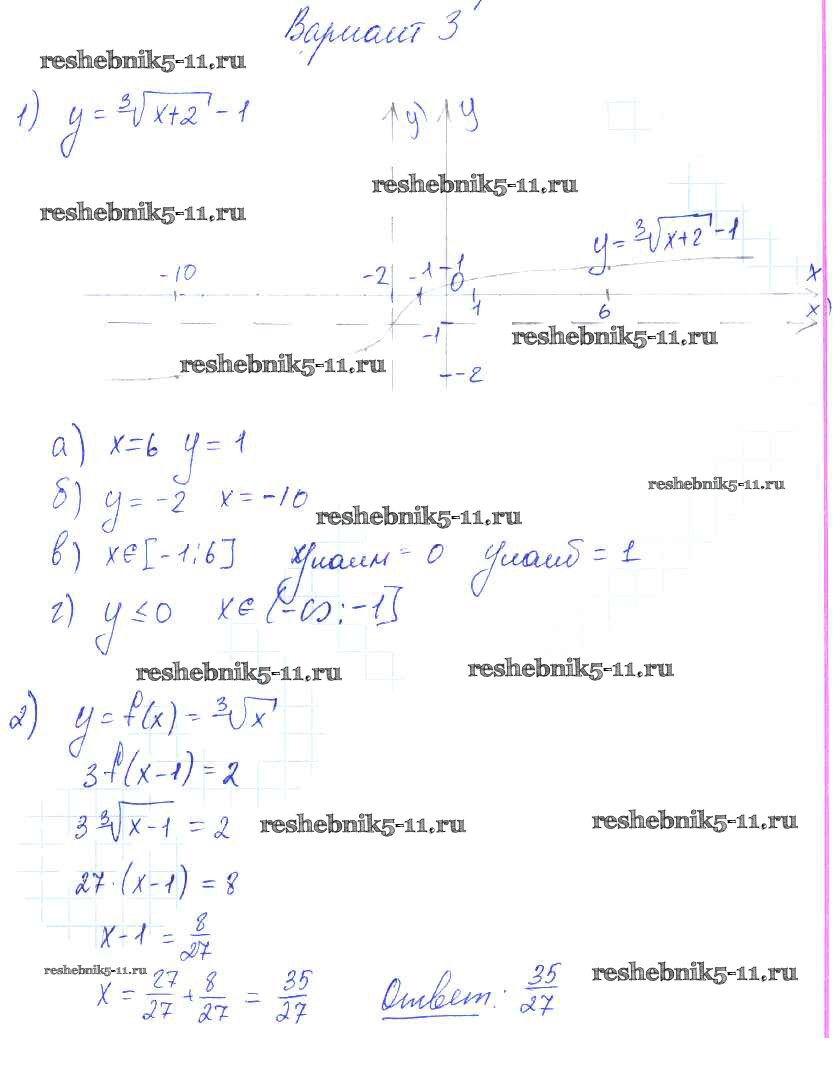 Вариант 3
reshebnik5-11.ru
1) y = ∛(x+2) - 1
y) y
reshebnik5-11.ru
reshebnik5-11.ru
y = ∛(x+2) - 1
-10 -2 -1 1 0 x
1 6 x)
-1 reshebnik5-11.ru
reshebnik5-11.ru -2
а) x=6 y = 1
reshebnik5-11.ru
б) y = -2 x = -10
reshebnik5-11.ru
в) x∈[-1;6] yнаим = 0 yнаиб = 1
г) y ≤ 0 x∈(-∞; -1]
reshebnik5-11.ru reshebnik5-11.ru
2) y = f(x) = ∛x
3f(x-1) = 2
3∛(x-1) = 2 reshebnik5-11.ru reshebnik5-11.ru
27·(x-1) = 8
x-1 = 8/27
reshebnik5-11.ru reshebnik5-11.ru
x = 27/27 + 8/27 = 35/27 Ответ: 35/27